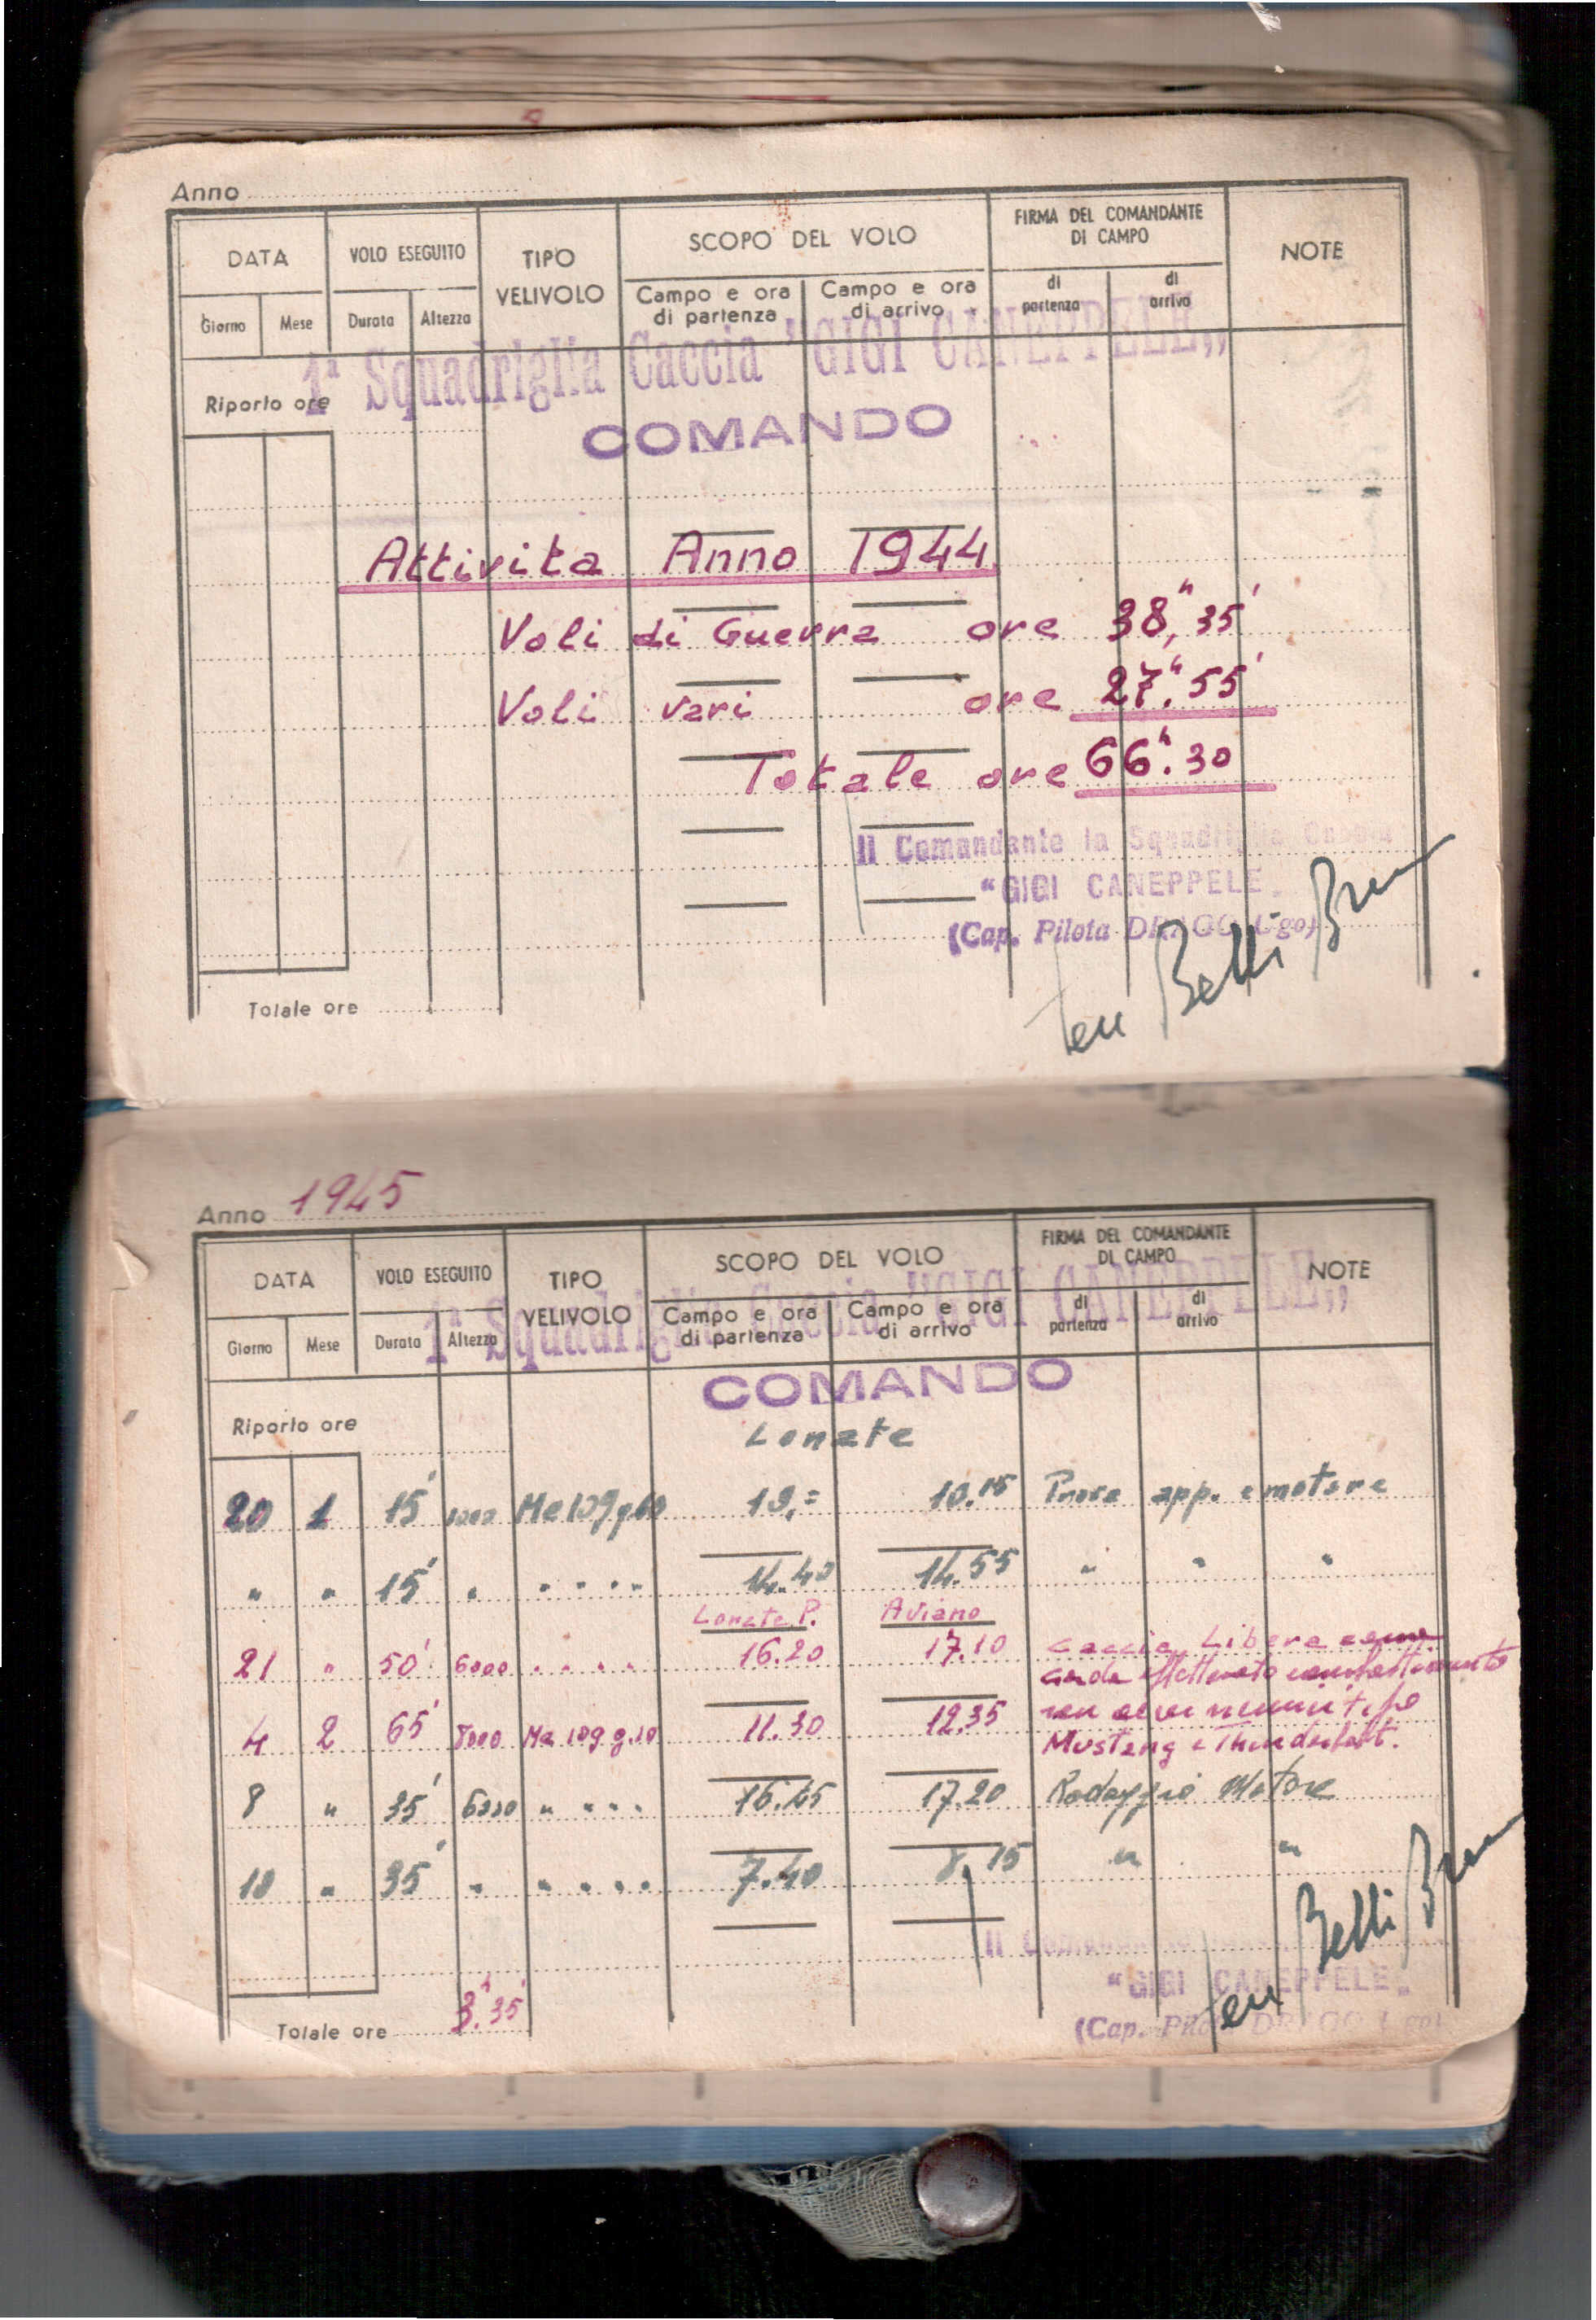 Anno
DATA VOLO ESEGUITO TIPO VELIVOLO SCOPO DEL VOLO FIRMA DEL COMANDANTE DI CAMPO NOTE
Giorno Mese Durata Altezza Campo e ora di partenza Campo e ora di arrivo di partenza di arrivo
1ª Squadriglia Caccia "GIGI CANEPPELE"
Riporto ore
COMANDO
Attivita Anno 1944
Voli di Guerra ore 38,"35'
Voli vari ore 27."55'
Totale ore 66".30
Il Comandante la Squadriglia Caccia
"GIGI CANEPPELE"
(Cap. Pilota DRAGO Ugo)
Ten Belli
Totale ore
Anno 1945
DATA VOLO ESEGUITO TIPO VELIVOLO SCOPO DEL VOLO FIRMA DEL COMANDANTE DI CAMPO NOTE
Giorno Mese Durata Altezza Campo e ora di partenza Campo e ora di arrivo di partenza di arrivo
1ª Squadriglia Caccia "GIGI CANEPPELE"
COMANDO
Riporto ore
Lonate
20 1 15' 1000 Me 109 g.10 10,= 10.15 Prova app. e motore
" " 15' " " " " " 14.40 14.55 " " "
Lonate P. Aviano
21 " 50' 6000 " " " " 16.20 17.10 Caccia Libera
4 2 65' 8000 Me 109 g.10 11.30 12.35
Musteng e Thunderbolt.
8 " 35' 6000 " " " " 16.45 17.20 Rodaggio Motore
10 " 35' " " " " " 7.40 8.15 " "
Il Comandante
"GIGI CANEPPELE"
Ten Belli
(Cap. Pilota DRAGO Ugo)
Totale ore 3."35'